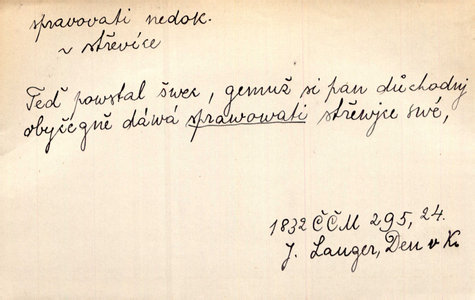 spravovati nedok.
~ střevíce
Teď powstal šwec, gemuž si pan důchodnj
obyčegně dáwá sprawowati střewjce swé,
1832 ČČM 295, 24.
J. Langer, Den v K.